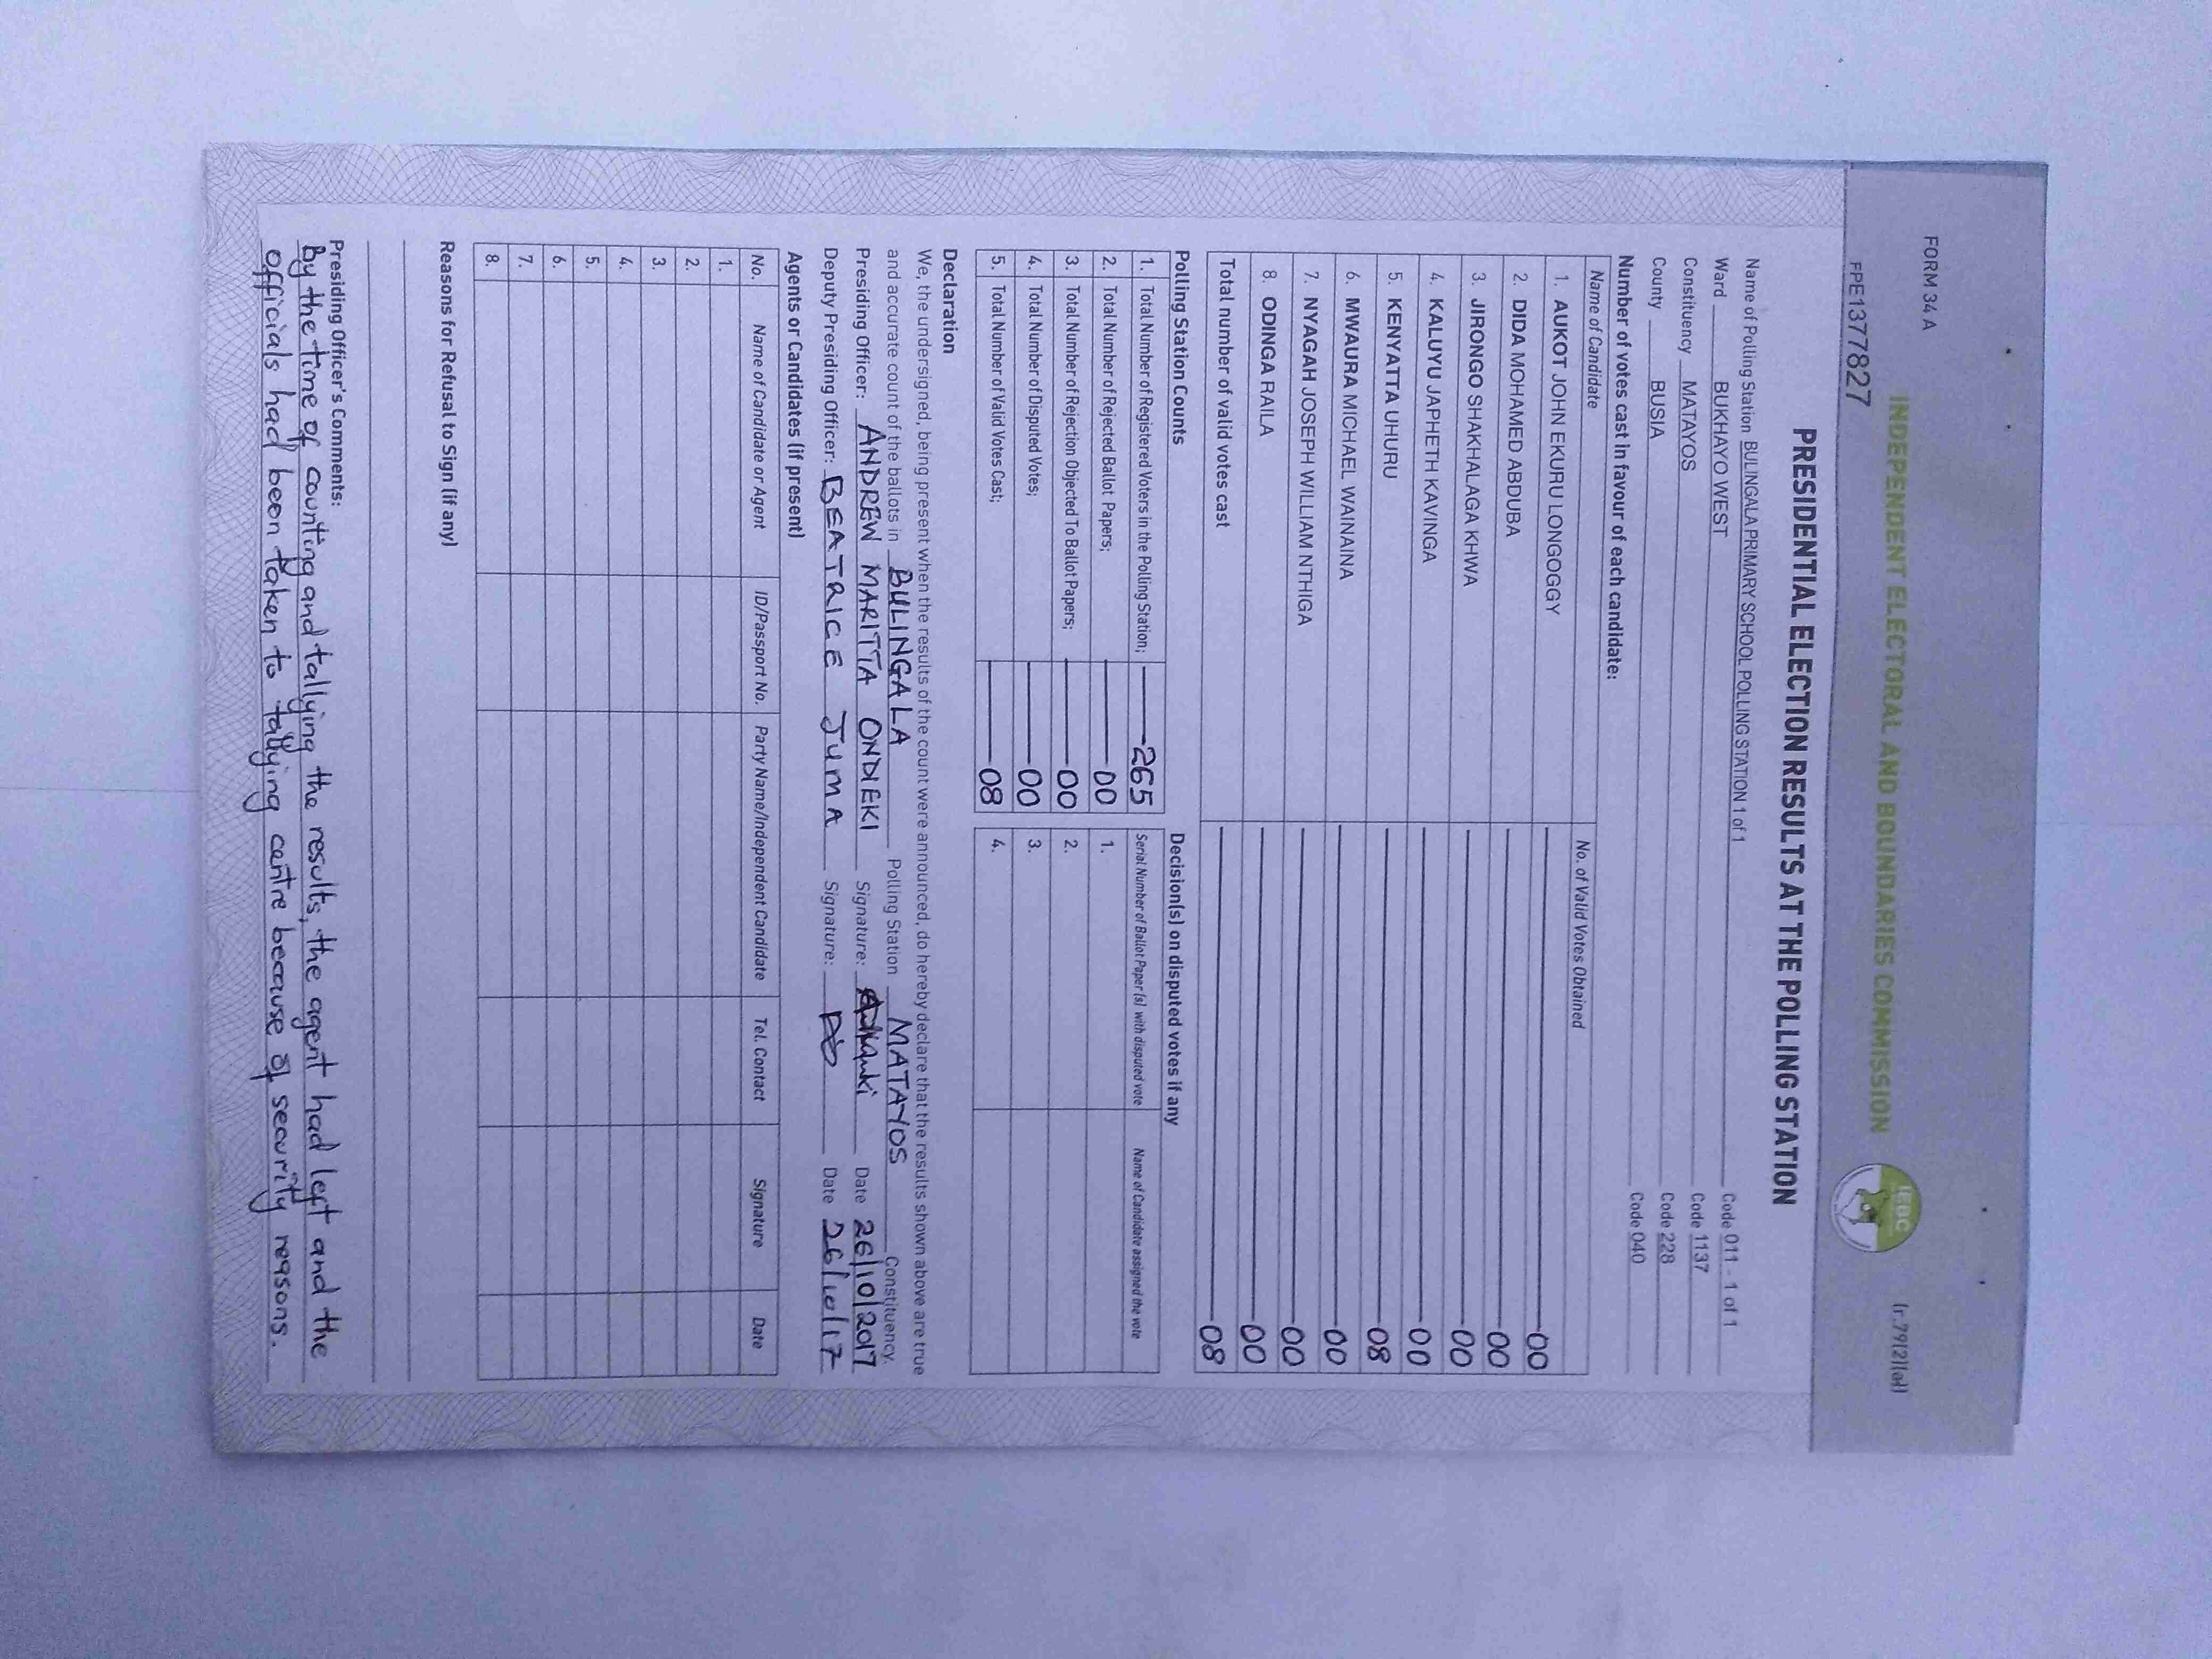 FORM 34 A
(r.79(2)(a))
INDEPENDENT ELECTORAL AND BOUNDARIES COMMISSION
iebc
FPE1377827
PRESIDENTIAL ELECTION RESULTS AT THE POLLING STATION
Name of Polling Station BULINGALA PRIMARY SCHOOL POLLING STATION 1 of 1 Code 011 - 1 of 1
Ward BUKHAYO WEST Code 1137
Constituency MATAYOS Code 228
County BUSIA Code 040
Number of votes cast in favour of each candidate:
Name of Candidate No. of Valid Votes Obtained
1. AUKOT JOHN EKURU LONGOGGY 00
2. DIDA MOHAMED ABDUBA 00
3. JIRONGO SHAKHALAGA KHWA 00
4. KALUYU JAPHETH KAVINGA 00
5. KENYATTA UHURU 08
6. MWAURA MICHAEL WAINAINA 00
7. NYAGAH JOSEPH WILLIAM NTHIGA 00
8. ODINGA RAILA 00
Total number of valid votes cast 08
Polling Station Counts
1. Total Number of Registered Voters in the Polling Station; 265
2. Total Number of Rejected Ballot Papers; 00
3. Total Number of Rejection Objected To Ballot Papers; 00
4. Total Number of Disputed Votes; 00
5. Total Number of Valid Votes Cast; 08
Decision(s) on disputed votes if any
Serial Number of Ballot Paper (s) with disputed vote Name of Candidate assigned the vote
1.
2.
3.
4.
Declaration
We, the undersigned, being present when the results of the count were announced, do hereby declare that the results shown above are true
and accurate count of the ballots in BULINGALA Polling Station MATAYOS Constituency.
Presiding Officer: ANDREW MARITTA ONDIEKI Signature: Date 26/10/2017
Deputy Presiding Officer: BEATRICE JUMA Signature: Date 26/10/17
Agents or Candidates (if present)
No. Name of Candidate or Agent ID/Passport No. Party Name/Independent Candidate Tel. Contact Signature Date
1.
2.
3.
4.
5.
6.
7.
8.
Reasons for Refusal to Sign (if any)
Presiding Officer's Comments:
By the time of counting and tallying the results, the agent had left and the
officials had been taken to tallying centre because of security reasons.